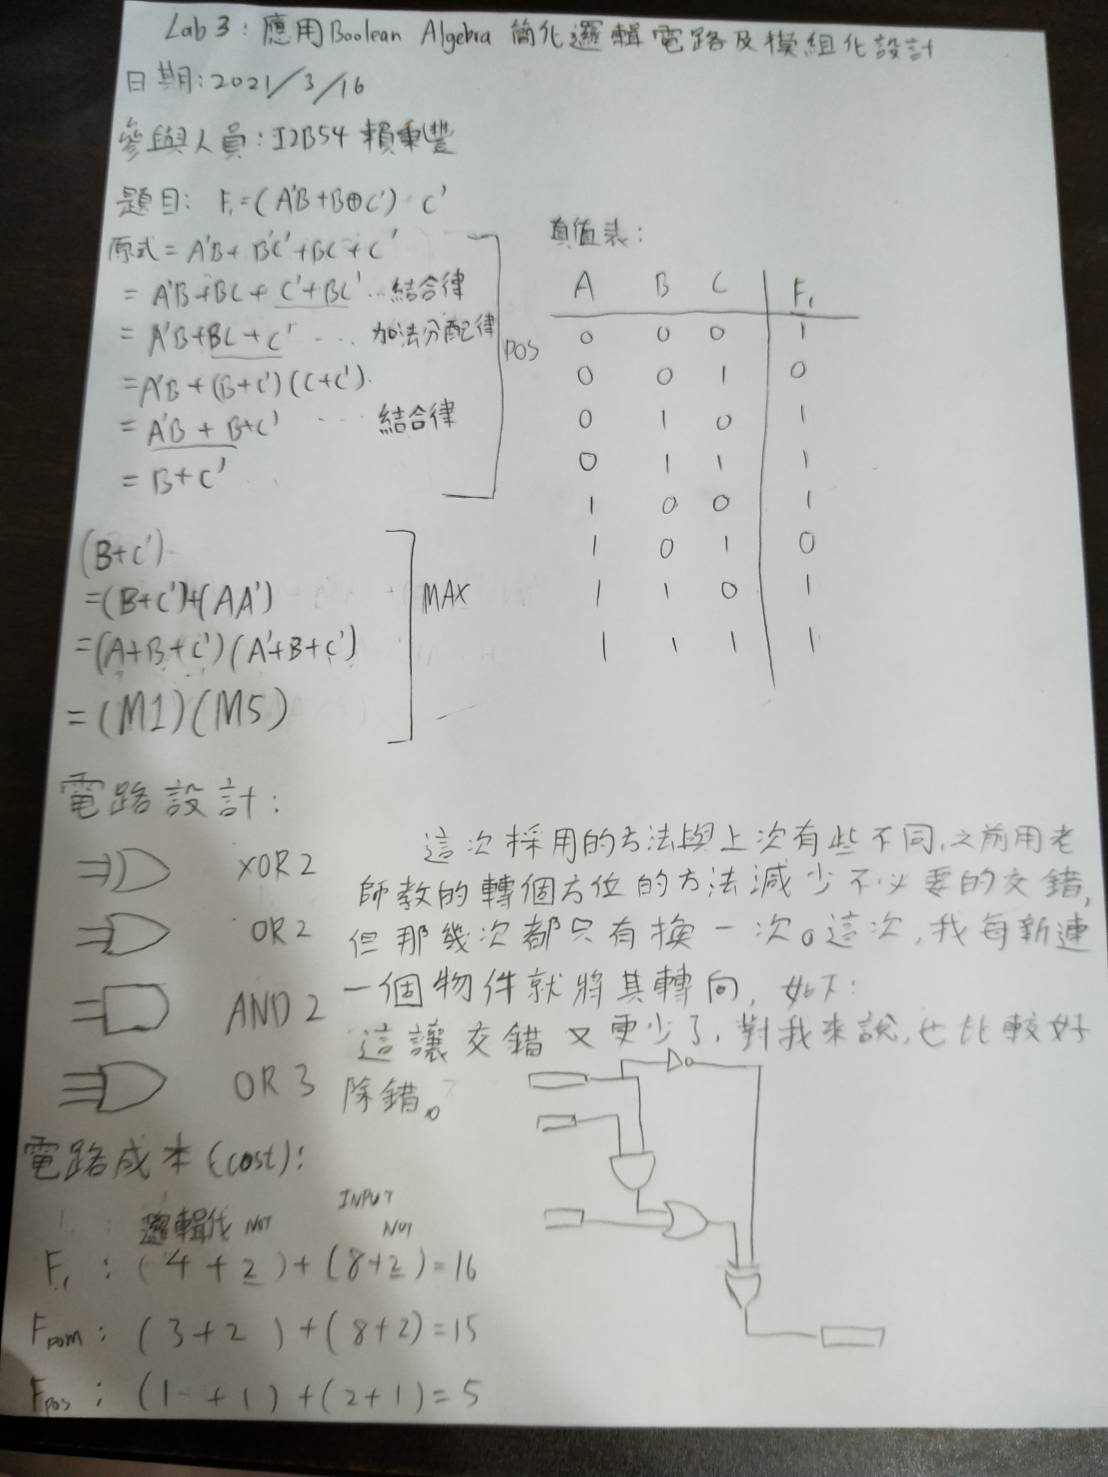 Lab 3: 應用Boolean Algebra 簡化邏輯電路及模組化設計
日期:2021/3/16
參與人員:I2B54 賴東豐
題目: F₁=(A'B+B⊕C')  C'
原式= A'B+ B'C'+BC+C'
= A'B+BC+ C'+BC' ...結合律
= A'B+BC+C' ... 加法分配律
=A'B+(B+C')(C+C').
= A'B + B+C' ... 結合律
= B+C'
POS
(B+C')
=(B+C')+(AA')
=(A+B+C')(A'+B+C')
= (M1)(M5)
MAX
真值表:
A B C F₁
0 0 0 1
0 0 1 0
0 1 0 1
0 1 1 1
1 0 0 1
1 0 1 0
1 1 0 1
1 1 1 1
電路設計:
XOR2
OR2
AND2
OR3
這次採用的方法與上次有些不同,之前用老
師教的轉個方位的方法減少不必要的交錯,
但那幾次都只有換一次。這次,我每新連
一個物件就將其轉向, 如下:
這讓交錯又更少了,對我來說,也比較好
除錯。
電路成本(cost):
邏輯 NOT INPUT NOT
F₁ : (4+2)+(8+2)=16
Fpom : (3+2)+(8+2)=15
Fpos : (1+1)+(2+1)=5